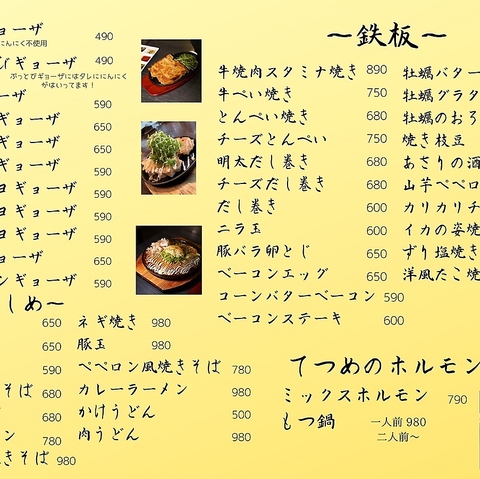 ョーザ 490
にんにく不使用
びギョーザ 490
ぶっとびギョーザにはタレににんにく
がはいってます！
ーザ 590
ギョーザ 650
ギョーザ 650
ギョーザ 590
ヨギョーザ 590
ヨギョーザ 650
ヨギョーザ 590
ョーザ 650
ンギョーザ 590
～鉄板～
牛焼肉スタミナ焼き 890
牛ぺい焼き 750
とんぺい焼き 680
チーズとんぺい 750
明太だし巻き 680
チーズだし巻き 680
だし巻き 600
ニラ玉 600
豚バラ卵とじ 650
ベーコンエッグ 650
コーンバターベーコン 590
ベーコンステーキ 600
牡蠣バター
牡蠣グラタ
牡蠣のおろ
焼き枝豆
あさりの酒
山芋ペペロ
カリカリチ
イカの姿焼
ずり塩焼き
洋風たこ焼
しめ～
650
650
590
そば 680
680
ン 780
きそば 980
ネギ焼き 980
豚玉 980
ペペロン風焼きそば 780
カレーラーメン 980
かけうどん 500
肉うどん 980
てつめのホルモン
ミックスホルモン 790
もつ鍋 一人前 980
二人前～